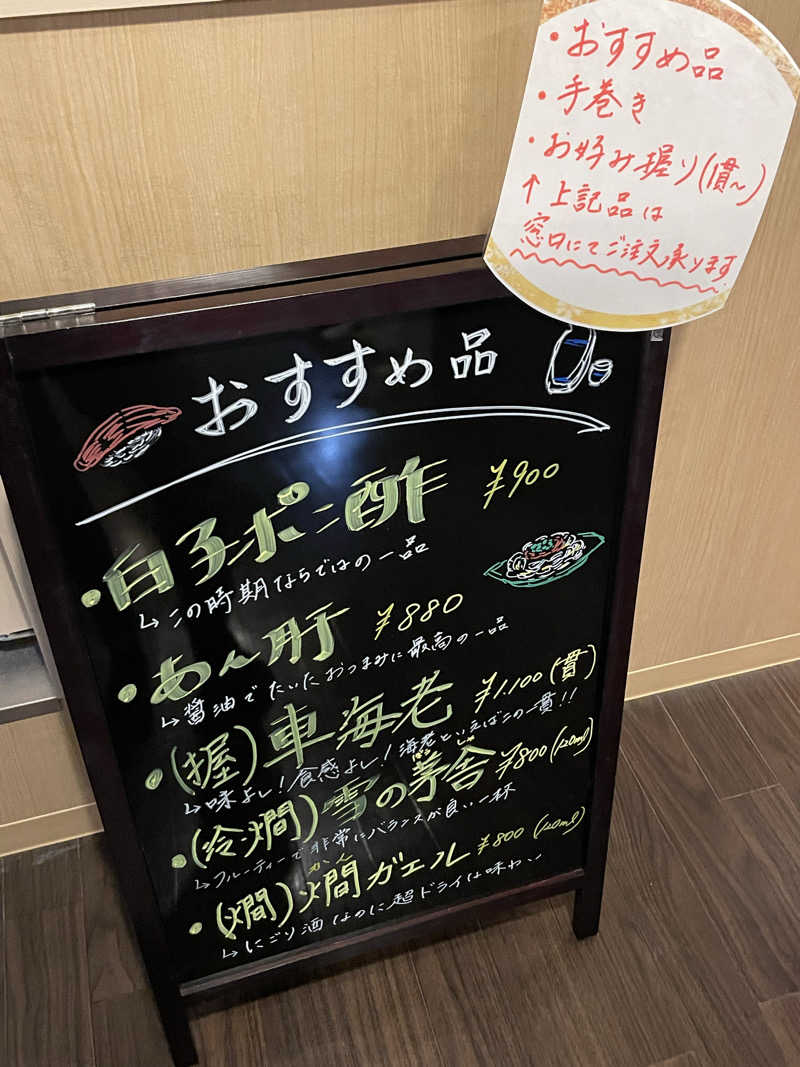 ・おすすめ品
・手巻き
・お好み握り(1貫〜)
↑上記品は
窓口にてご注文承ります
おすすめ品
・白子ポン酢 ¥900
↳この時期ならではの一品
・あん肝 ¥880
↳醤油でたいたおつまみに最高の一品
・(握)車海老 ¥1.100(貫)
↳味よし!食感よし!海老といえばこの一貫!!
・(冷燗)雪の茅舎 ¥800(120ml)
↳フルーティーで非常にバランスが良い一杯
かん
・(燗)燗ガエル ¥800(120ml)
↳にごり酒なのに超ドライな味わい